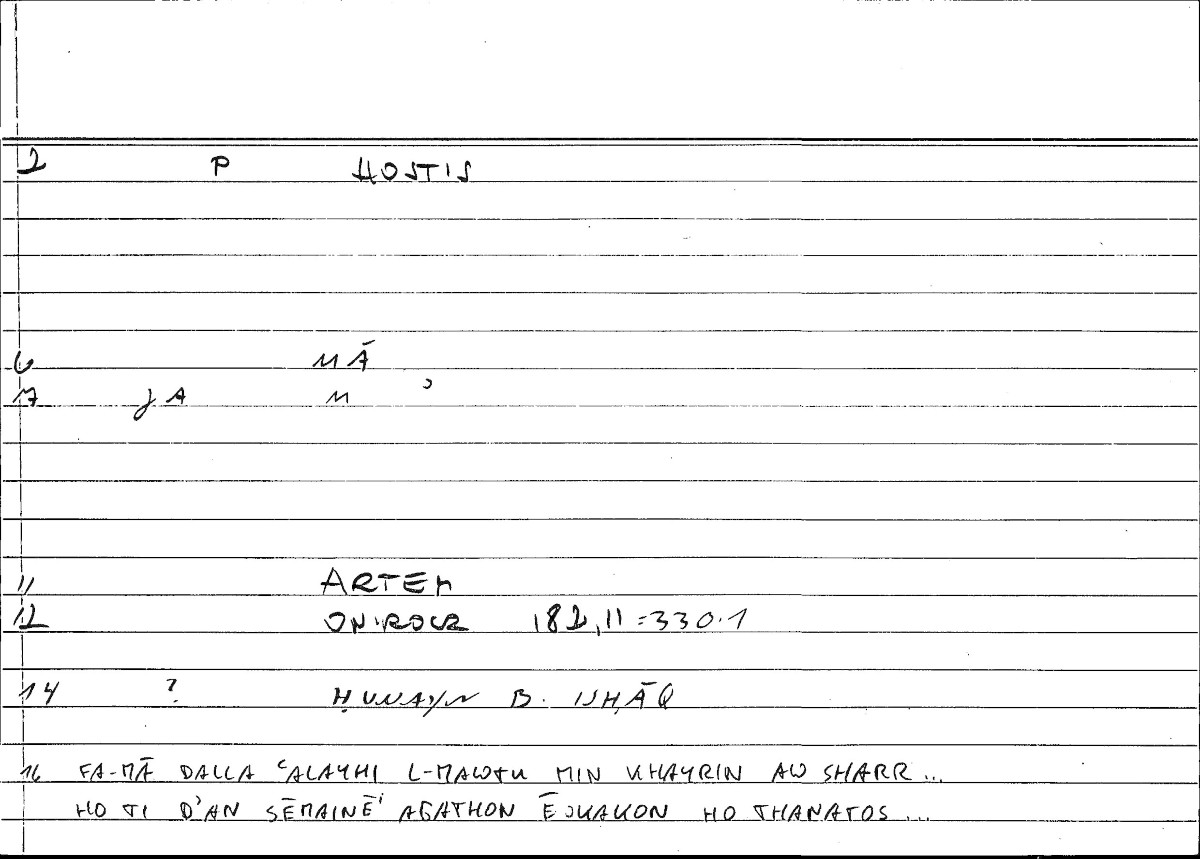 2 P HOSTIS
6 MĀ
7 JA M ʾ
11 ARTEM
12 ONIROCR 182,11=330.1
14 ? ḤUNAYN B. ISḤĀQ
16 FA-MĀ DALLA ʿALAYHI L-MAWTU MIN KHAYRIN AW SHARR...
HO TI D'AN SĒMAINĒ' AGATHON Ē KAKON HO THANATOS...